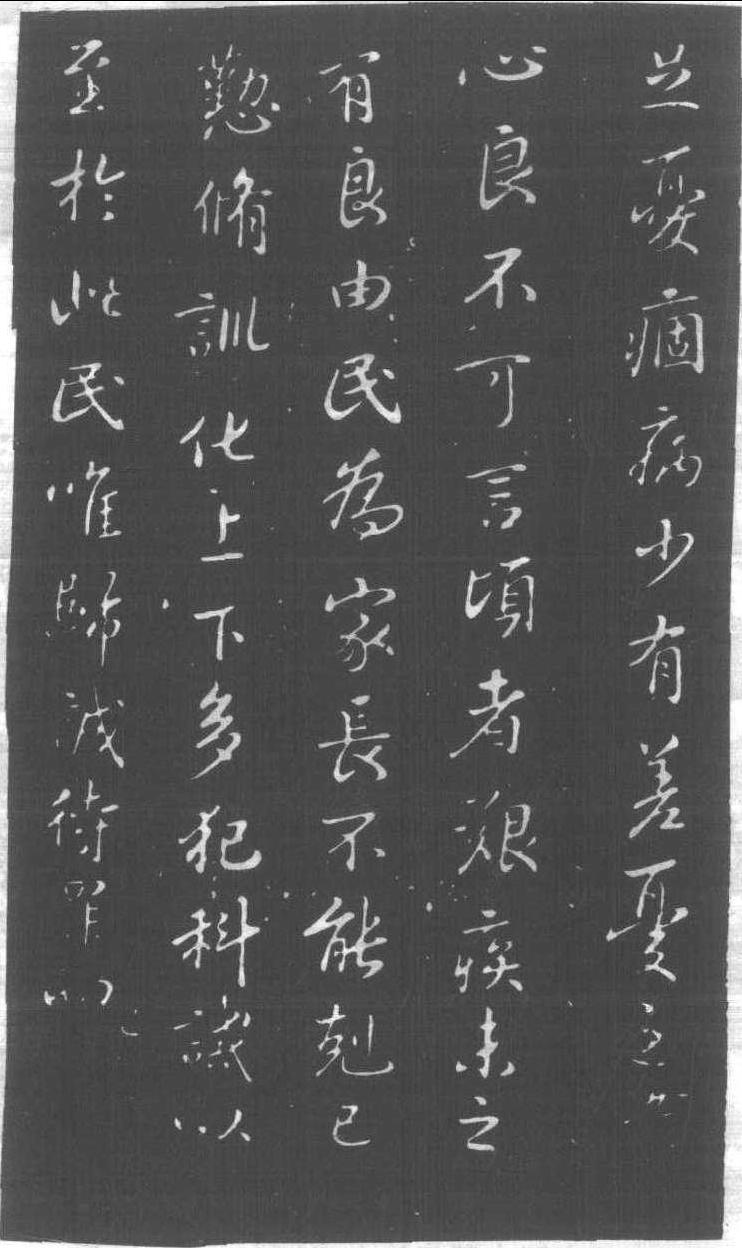 憂痼病少有差憂之燋
心良不可言頃者艱疾未之
有良由民為家長不能剋己
懃脩訓化上下多犯科誡以
至於此民唯歸誠待罪而